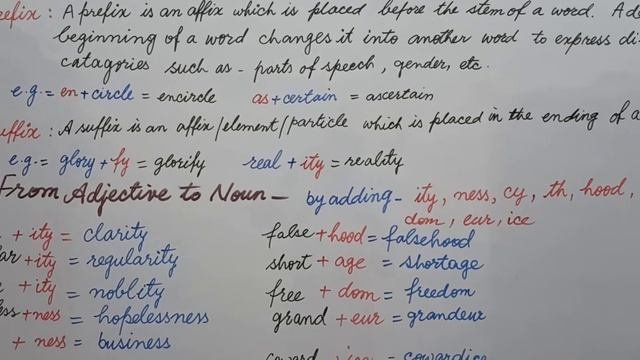 refix : A prefix is an affix which is placed before the stem of a word. A
beginning of a word changes it into another word to express di
catagories such as - parts of speech, gender, etc.
e.g. = en + circle = encircle as + certain = ascertain
uffix : A suffix is an affix/element/particle which is placed in the ending of a
e.g. = glory + fy = glorify real + ity = reality
From Adjective to Noun - by adding - ity, ness, cy, th, hood,
dom, eur, ice
+ ity = clarity false + hood = falsehood
ar + ity = regularity short + age = shortage
+ ity = noblity free + dom = freedom
ess + ness = hopelessness grand + eur = grandeur
+ ness = business
coward = cowardice